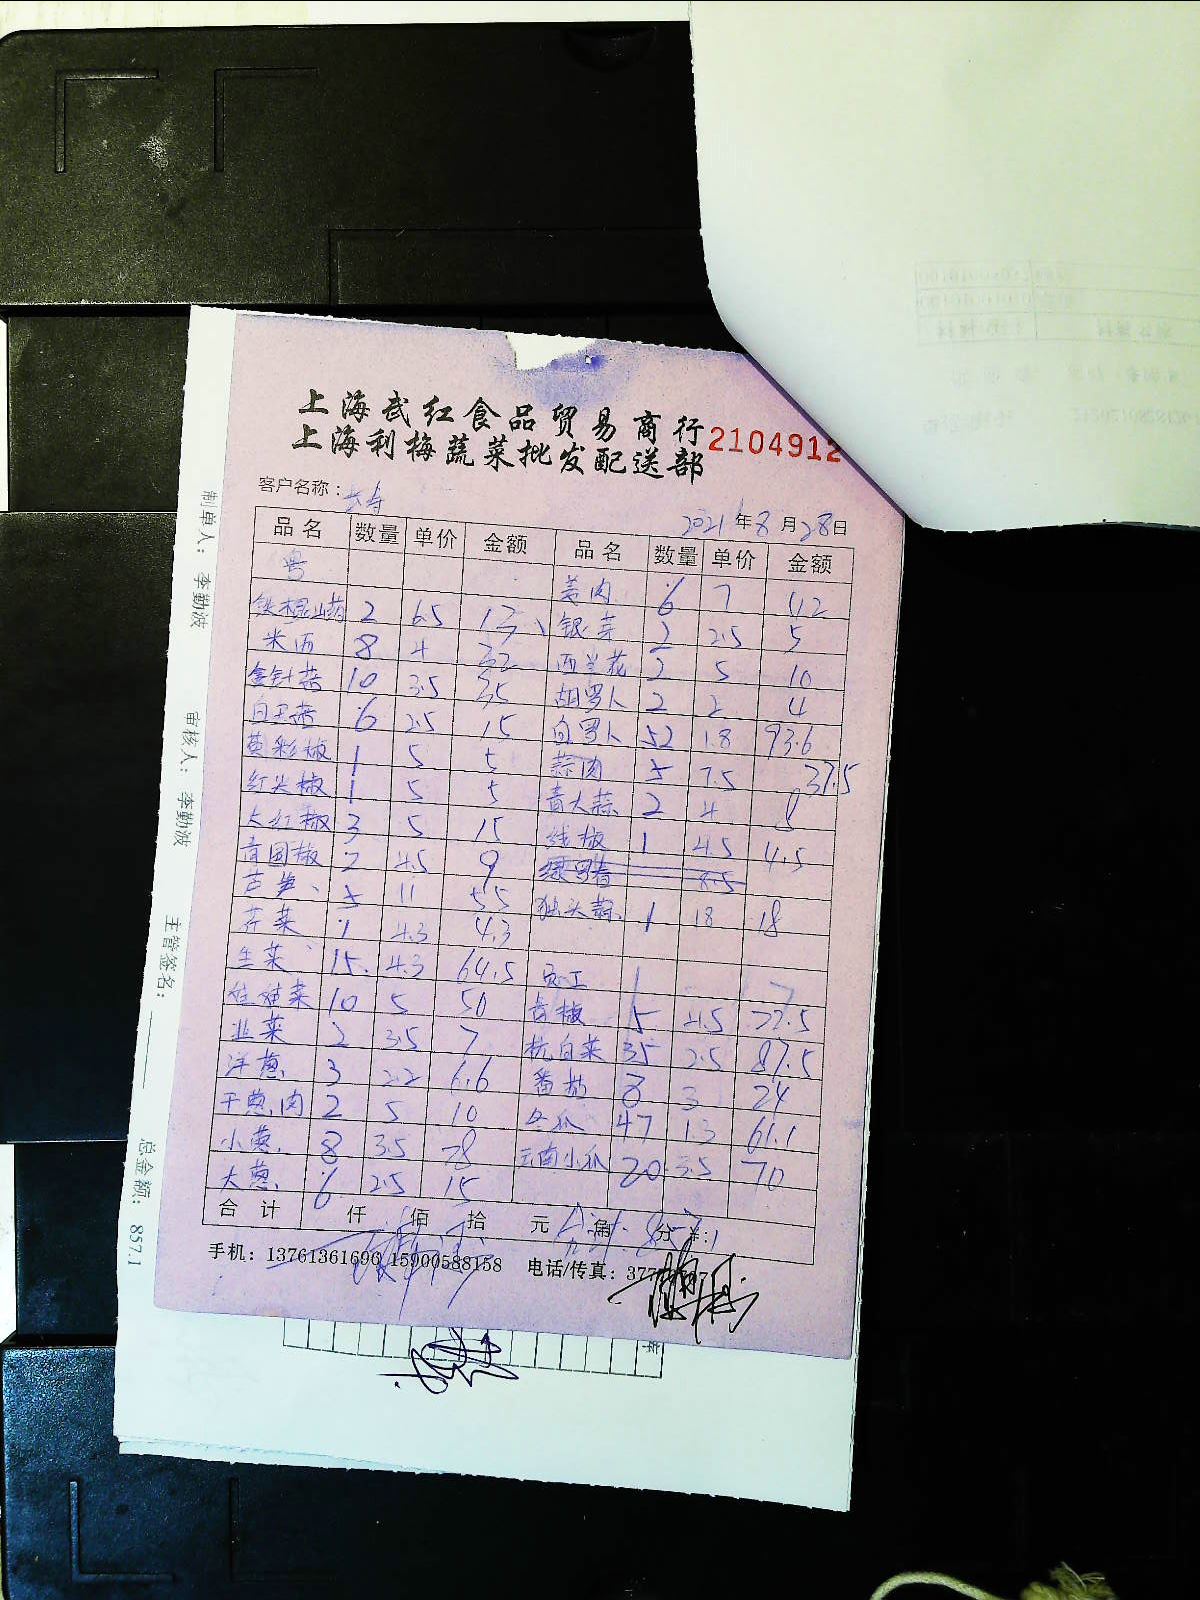 上海武红食品贸易商行
上海利梅蔬菜批发配送部
2104912
客户名称：长寿
2021年8月28日
品名 数量 单价 金额 品名 数量 单价 金额
粤 姜肉 6 7 42
铁棍山药 2 6.5 13 银芽 2 2.5 5
米西 8 4 32 西兰花 2 5 10
金针菇 10 3.5 35 胡罗卜 2 2 4
白玉菇 6 2.5 15 白罗卜 52 1.8 93.6
黄彩椒 1 5 5 蒜肉 5 7.5 37.5
红尖椒 1 5 5 青大蒜 2 4 8
大红椒 3 5 15 线椒 1 4.5 4.5
青圆椒 2 4.5 9 8.5
芦笋 5 11 55 独头蒜 1 18 18
芹菜 1 4.3 4.3
生菜 15 4.3 64.5 员工
娃娃菜 10 5 50 青椒 5 4.5 22.5
韭菜 2 3.5 7 杭白菜 35 2.5 87.5
洋葱 3 2.2 6.6 番茄 8 3 24
干葱肉 2 5 10 冬瓜 47 1.3 61.1
小葱 8 3.5 28 云南小瓜 20 3.5 70
大葱 6 2.5 15
合计 仟 佰 拾 元 角 分 ¥:
手机：13761361690 15900588158 电话/传真：377
制单人：李勤波
审核人：李勤波
主管签名：
总金额：857.1